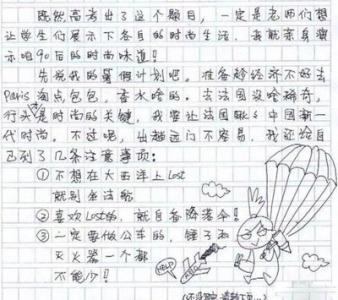 既然高考出了这个题目，一定是老师们想
让学生们展示下各自的时尚生活，我就亲身演
示吧90后的时尚味道！
先说我的暑假计划吧。准备趁经济不好去
Paris淘点包包，香水啥的。去法国没啥稀奇，
行头是时尚的关键，我要让法国 中国新一
代时尚。不过呢，出趟远门不容易，我还给自
己列了几条注意事项：
①不想在大西洋上Lost
就别坐法航
②喜欢Lost的，就自备降落伞！
③一定要做公车的，锤子和
灭火器一个都
不能少！
HELP
(还没写完，请翻下页...)